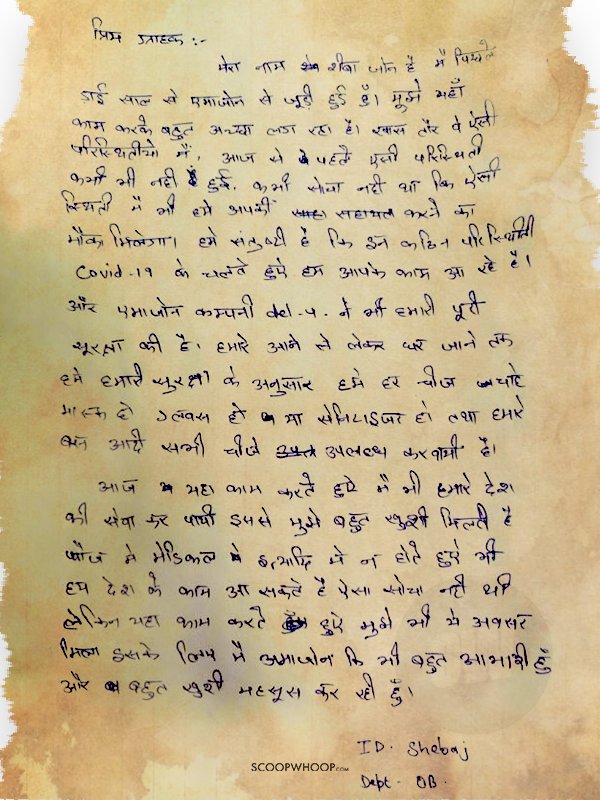 प्रिय ग्राहक :-
मेरा नाम शीबा जोन है मैं पिछले
ढाई साल से एमाजोन से जूड़ी हुई हूँ। मुझे यहाँ
काम करके बहुत अच्छा लग रहा है। खास तौर पे ऐसी
परिस्थितीयो में, आज से पहले ऐसी परिस्थिती
कभी भी नही हुई, कभी सोचा नही था कि ऐसी
स्थिती में भी हमे आपकी सहायता करने का
मौका मिलेगा। हमे संतुष्टी है कि इन कठिन परिस्थिती
Covid-19 के चलते हुऐ हम आपके काम आ रहे है।
और एमाजोन कम्पनी del-4. ने भी हमारी पूरी
सूरक्षा की है। हमारे आने से लेकर घर जाने तक
हमे हमारी सुरक्षा के अनुसार हमे हर चीज चाहे
मास्क हो ग्लवस हो या सेनिटाइजर हो तथा हमारे
बस आदी सभी चीजे उपलब्ध करवायी है।
आज यहा काम करते हुऐ मैं भी हमारे देश
की सेवा कर पायी इससे मुझे बहुत खुशी मिलती है
फौज मे मेडिकल इत्यादि मे न होते हुऐ भी
हम देश के काम आ सकते है ऐसा सोचा नही थी
लेकिन यहा काम करते हुऐ मुझे भी ये अवसर
मिला इसके लिए मैं अमाजोन कि भी बहुत आभारी हूँ
और बहुत खुशी महसूस कर रही हूँ।
ID. Shebaj
Dept - OB.
SCOOPWHOOP.COM